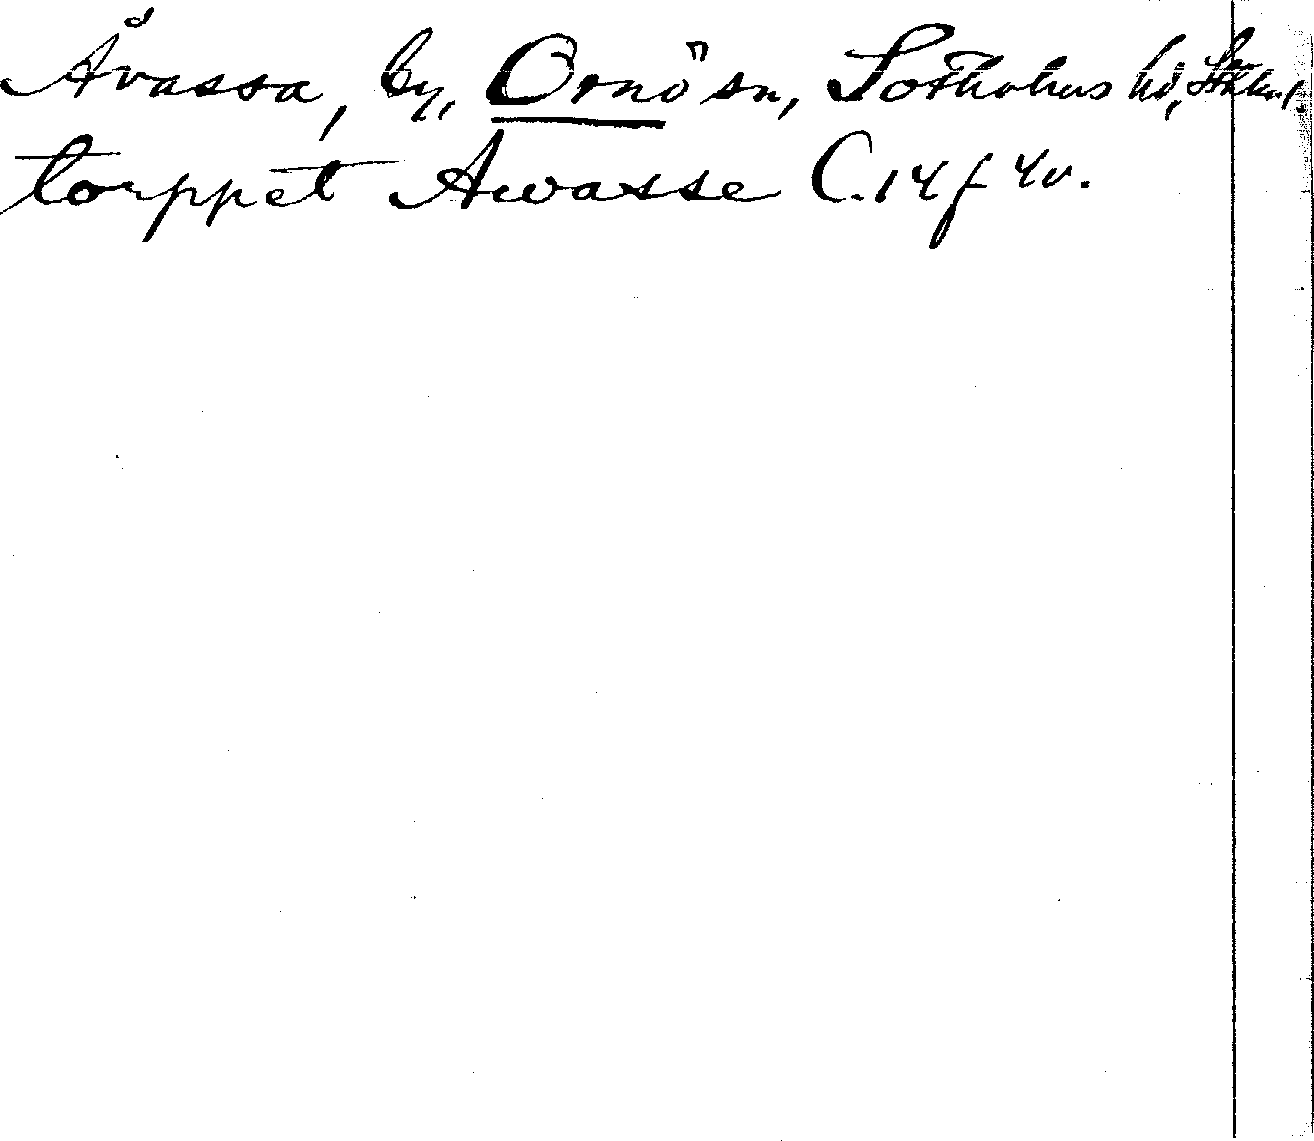 Åvassa, by, Ornö sn, Sotholms hd, Sthlms l.
torppet Awasse C. 14 f 4v.